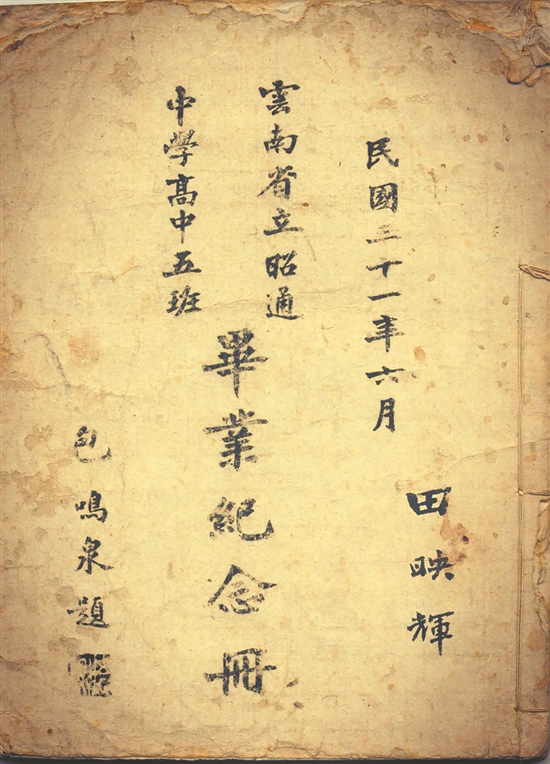 民國三十一年六月
田映輝
雲南省立昭通
中學高中五班
畢業紀念冊
包鳴泉題